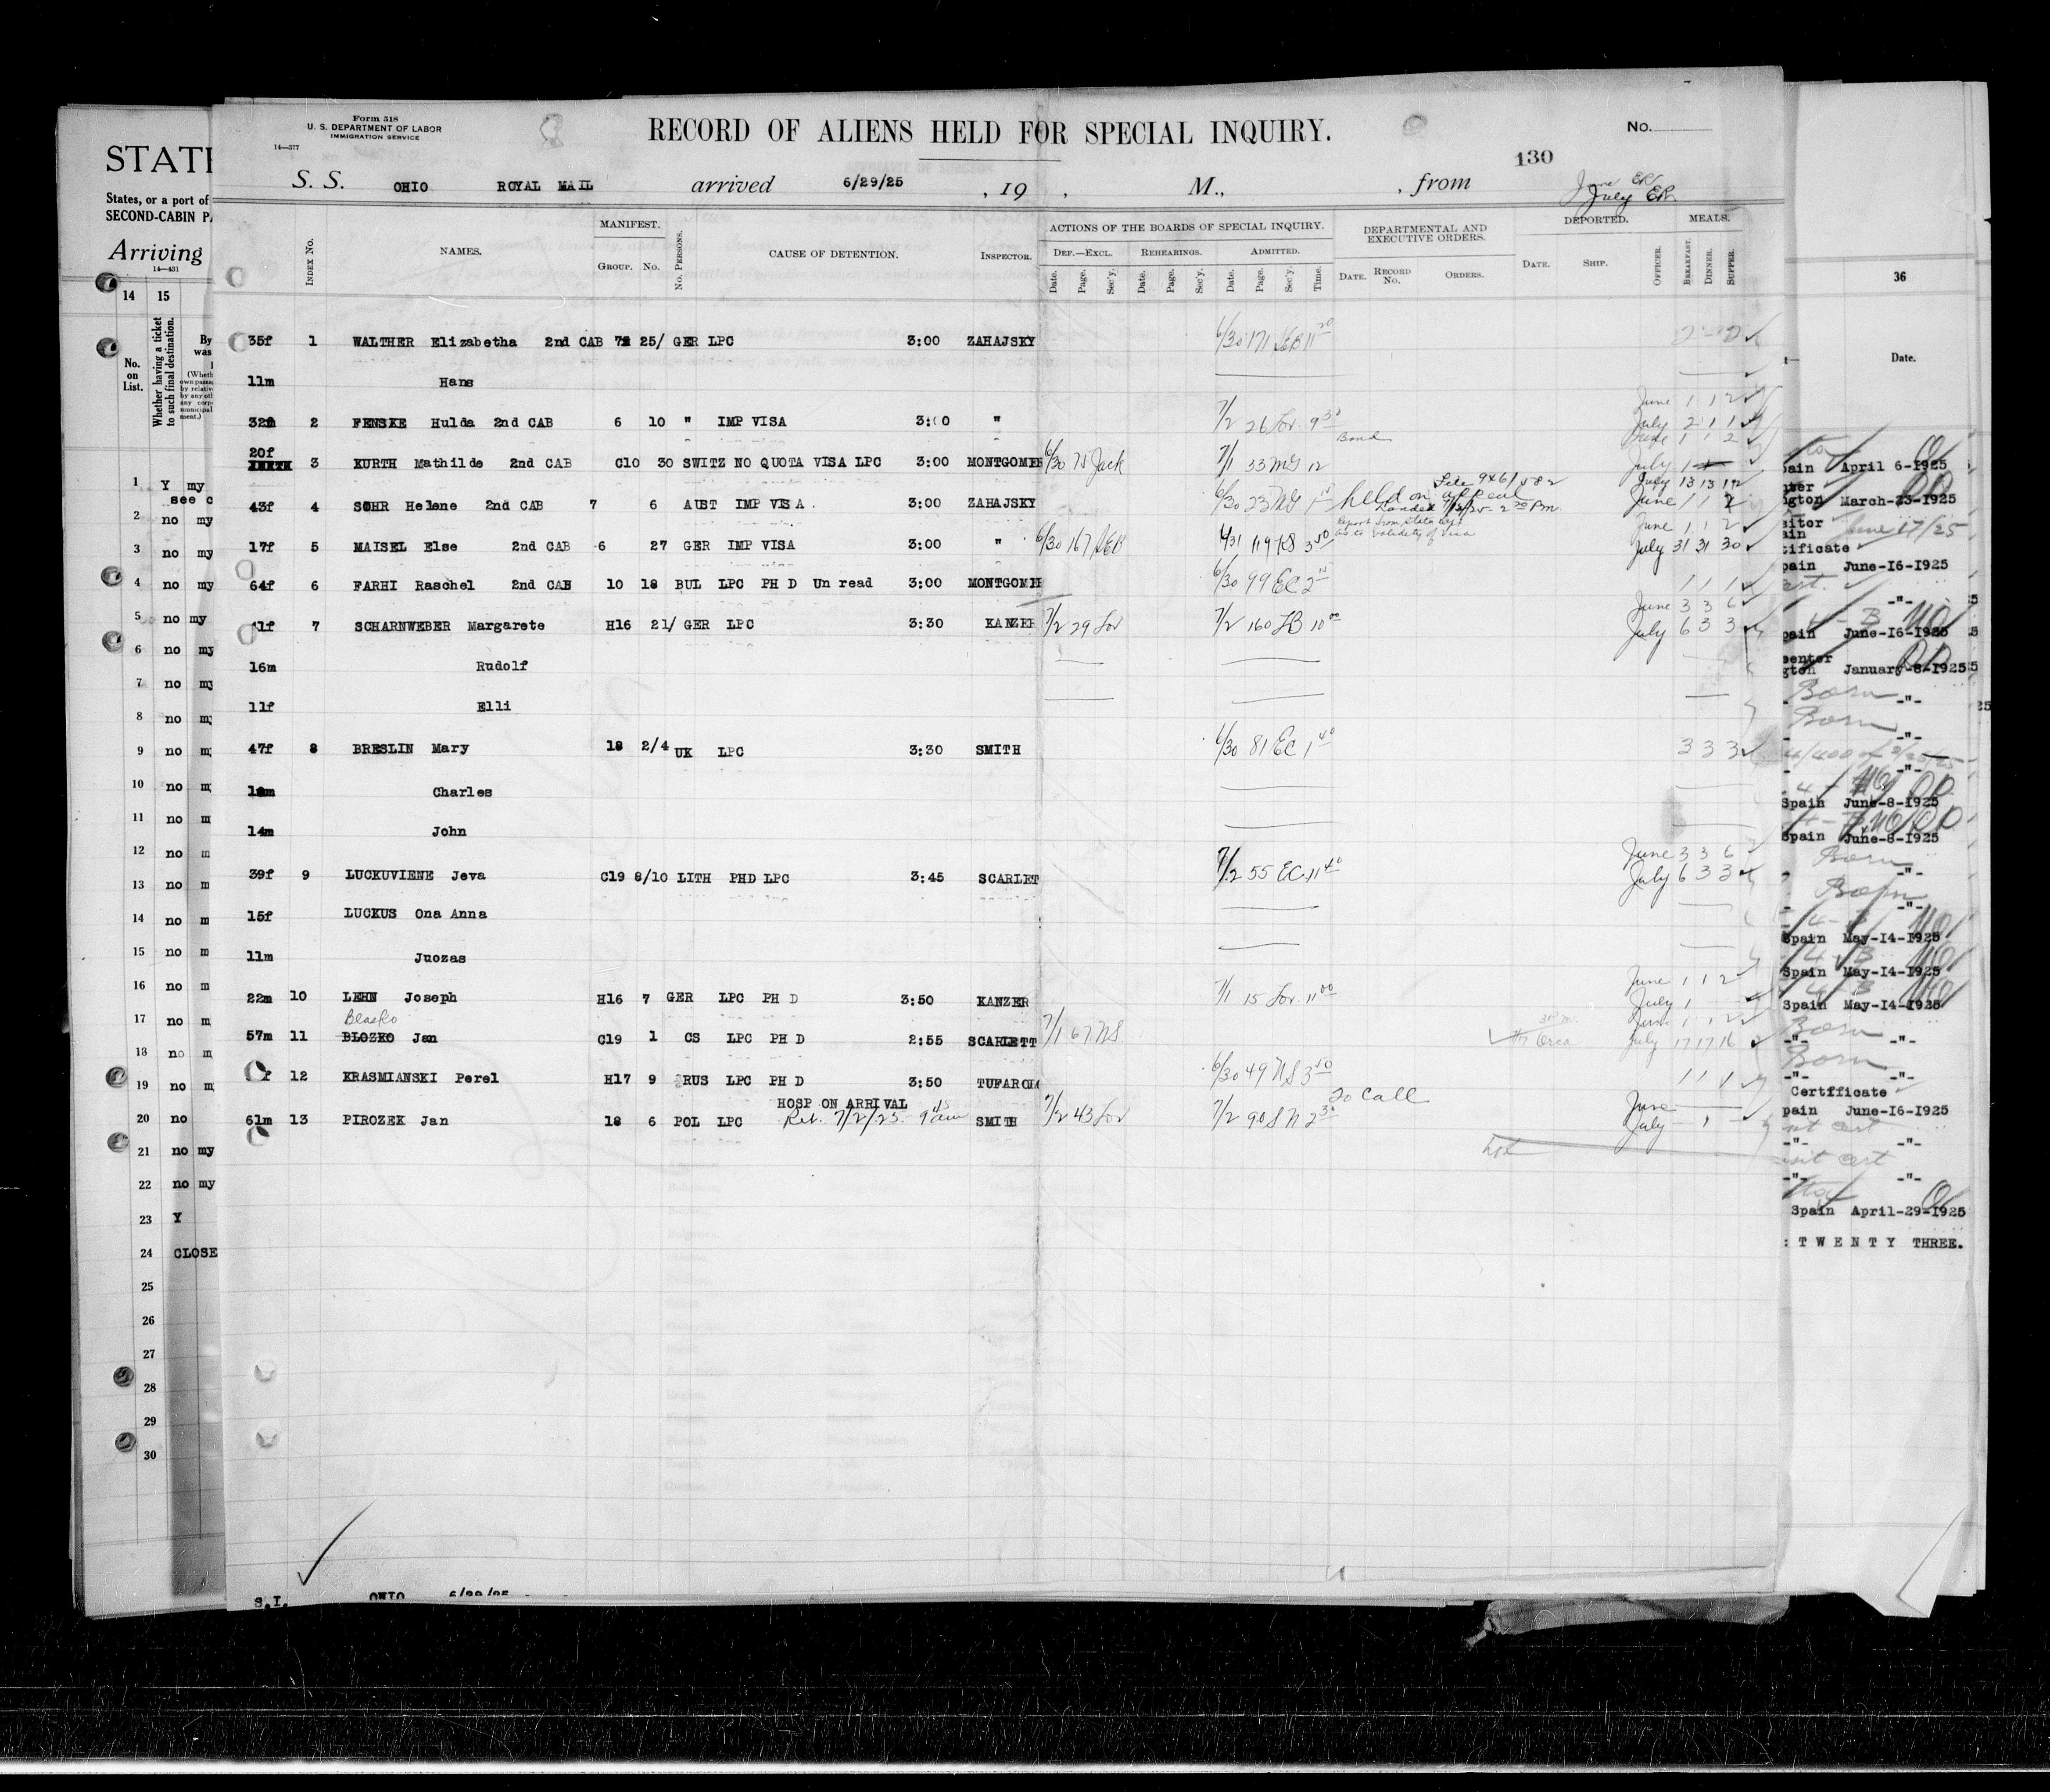 Form 518
U. S. DEPARTMENT OF LABOR
IMMIGRATION SERVICE
14—577
RECORD OF ALIENS HELD FOR SPECIAL INQUIRY.
No.
130
S. S. OHIO ROYAL MAIL arrived 6/29/25, 19 , M., , from
June ER
July ER
INDEX No. NAMES. MANIFEST. GROUP. No. No. PERSONS. CAUSE OF DETENTION. INSPECTOR. ACTIONS OF THE BOARDS OF SPECIAL INQUIRY. DEPARTMENTAL AND EXECUTIVE ORDERS. DEPORTED. MEALS.
DEF.—EXCL. REHEARINGS. ADMITTED.
Date. Page. Sec'y. Date. Page. Sec'y. Date. Page. Sec'y. Time. DATE. RECORD No. ORDERS. DATE. SHIP. OFFICER. BREAKFAST. DINNER. SUPPER.
35f 1 WALTHER Elizabetha 2nd CAB 25/ GER LPC 3:00 ZAHAJSKY 6/30 171
11m Hans
June 1 1 2
32 2 FENSKE Hulda 2nd CAB 6 10 " IMP VISA 3:00 " 7/2 26 Lor 9 30 July 2 1 1
Bond June 1 1 2
20f 3 KURTH Mathilde 2nd CAB C10 30 SWITZ NO QUOTA VISA LPC 3:00 MONTGOMER 6/30 75 Jack 7/1 33 12 July 1
July 13 13 12
43f 4 SOHR Helene 2nd CAB 7 6 AUST IMP VISA. 3:00 ZAHAJSKY 6/30 23 held on appeal June 1 1 2
Landed
report from State Dept
as to validity of Visa June 1 1 2
17f 5 MAISEL Else 2nd CAB 6 27 GER IMP VISA 3:00 " 6/30 167 119 3 50 July 31 31 30
64f 6 FARHI Raschel 2nd CAB 10 18 BUL LPC PH D Un read 3:00 MONTGOME 6/30 99 EC 2 1 1 1
June 3 3 6
41f 7 SCHARNWEBER Margarete H16 21/ GER LPC 3:30 KANZER 7/2 29 Lor 7/2 160 10 00 July 6 3 3
16m Rudolf
11f Elli
47f 8 BRESLIN Mary 18 2/4 UK LPC 3:30 SMITH 6/30 81 EC 1 40 3 3 3
Charles
14m John
June 3 3 6
39f 9 LUCKUVIENE Jeva C19 8/10 LITH PHD LPC 3:45 SCARLET 7/2 55 EC 11 40 July 6 3 3
15f LUCKUS Ona Anna
11m Juozas
June 1 1 2
22m 10 LEHN Joseph H16 7 GER LPC PH D 3:50 KANZER 7/1 15 Lor 11 00 July 1
Blasko June 1 1 2
57m 11 BLOZKO Jan C19 1 CS LPC PH D 2:55 SCARLETT 7/1 67 NS Orca July 17 17 16
f 12 KRASMIANSKI Perel H17 9 RUS LPC PH D 3:50 TUFAROLO 6/30 49 NS 3 50 1 1 1
HOSP ON ARRIVAL to call June
61m 13 PIROZEK Jan 18 6 POL LPC Ret. 7/2/25 9 45 am SMITH 7/2 43 Lor 7/2 90 2 30 July 1
S.I. OHIO 6/29/25
STATE
States, or a port of
SECOND-CABIN PA
Arriving
14—431
14 15
No. on List.
Whether having a ticket to such final destination.
1 Y my
see c
2 no my
3 no my
4 no my
5 no my
6 no my
7 no my
8 no m
9 no m
10 no m
11 no m
12 no m
13 no m
14 no m
15 no m
16 no m
17 no m
18 no m
19 no m
20 no
21 no my
22 no my
23 Y
24 CLOSE
25
26
27
28
29
30
36
Date.
pain April 6-1925
gton March-23-1925
June 17/25
tificate
pain June-16-1925
-"-
pain June-16-1925
gton January-8-1925
Born -"-
Born -"-
-"-
Spain June-8-1925
Spain June-8-1925
Born -"-
Born -"-
Spain May-14-1925
Spain May-14-1925
Spain May-14-1925
Born
-"- -"-
Born
-"- -"-
Certfficate
pain June-16-1925
-"- -"-
-"- -"-
Spain April-29-1925
: T W E N T Y THREE.